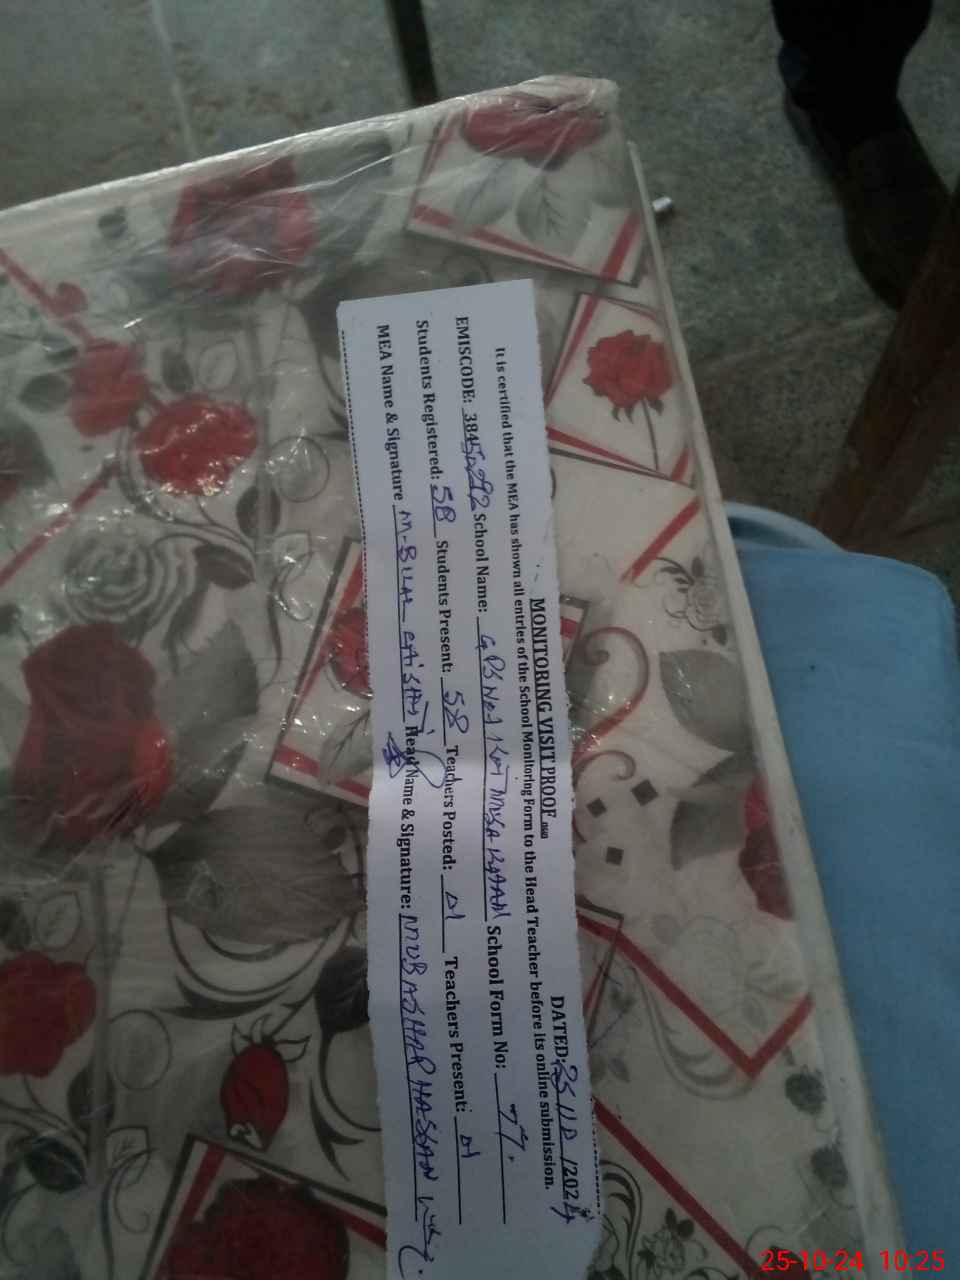 MONITORING VISIT PROOF
DATED: 25/10/2024
It is certified that the MEA has shown all entries of the School Monitoring Form to the Head Teacher before its online submission.
EMISCODE: 38450292 School Name: GPS No1 Kot Musa Khan School Form No: 77.
Students Registered: 58 Students Present: 58 Teachers Posted: 01 Teachers Present: 01
MEA Name & Signature M-BILAL Head Name & Signature: MUBASHAR HASSAN
25-10-24 10:25